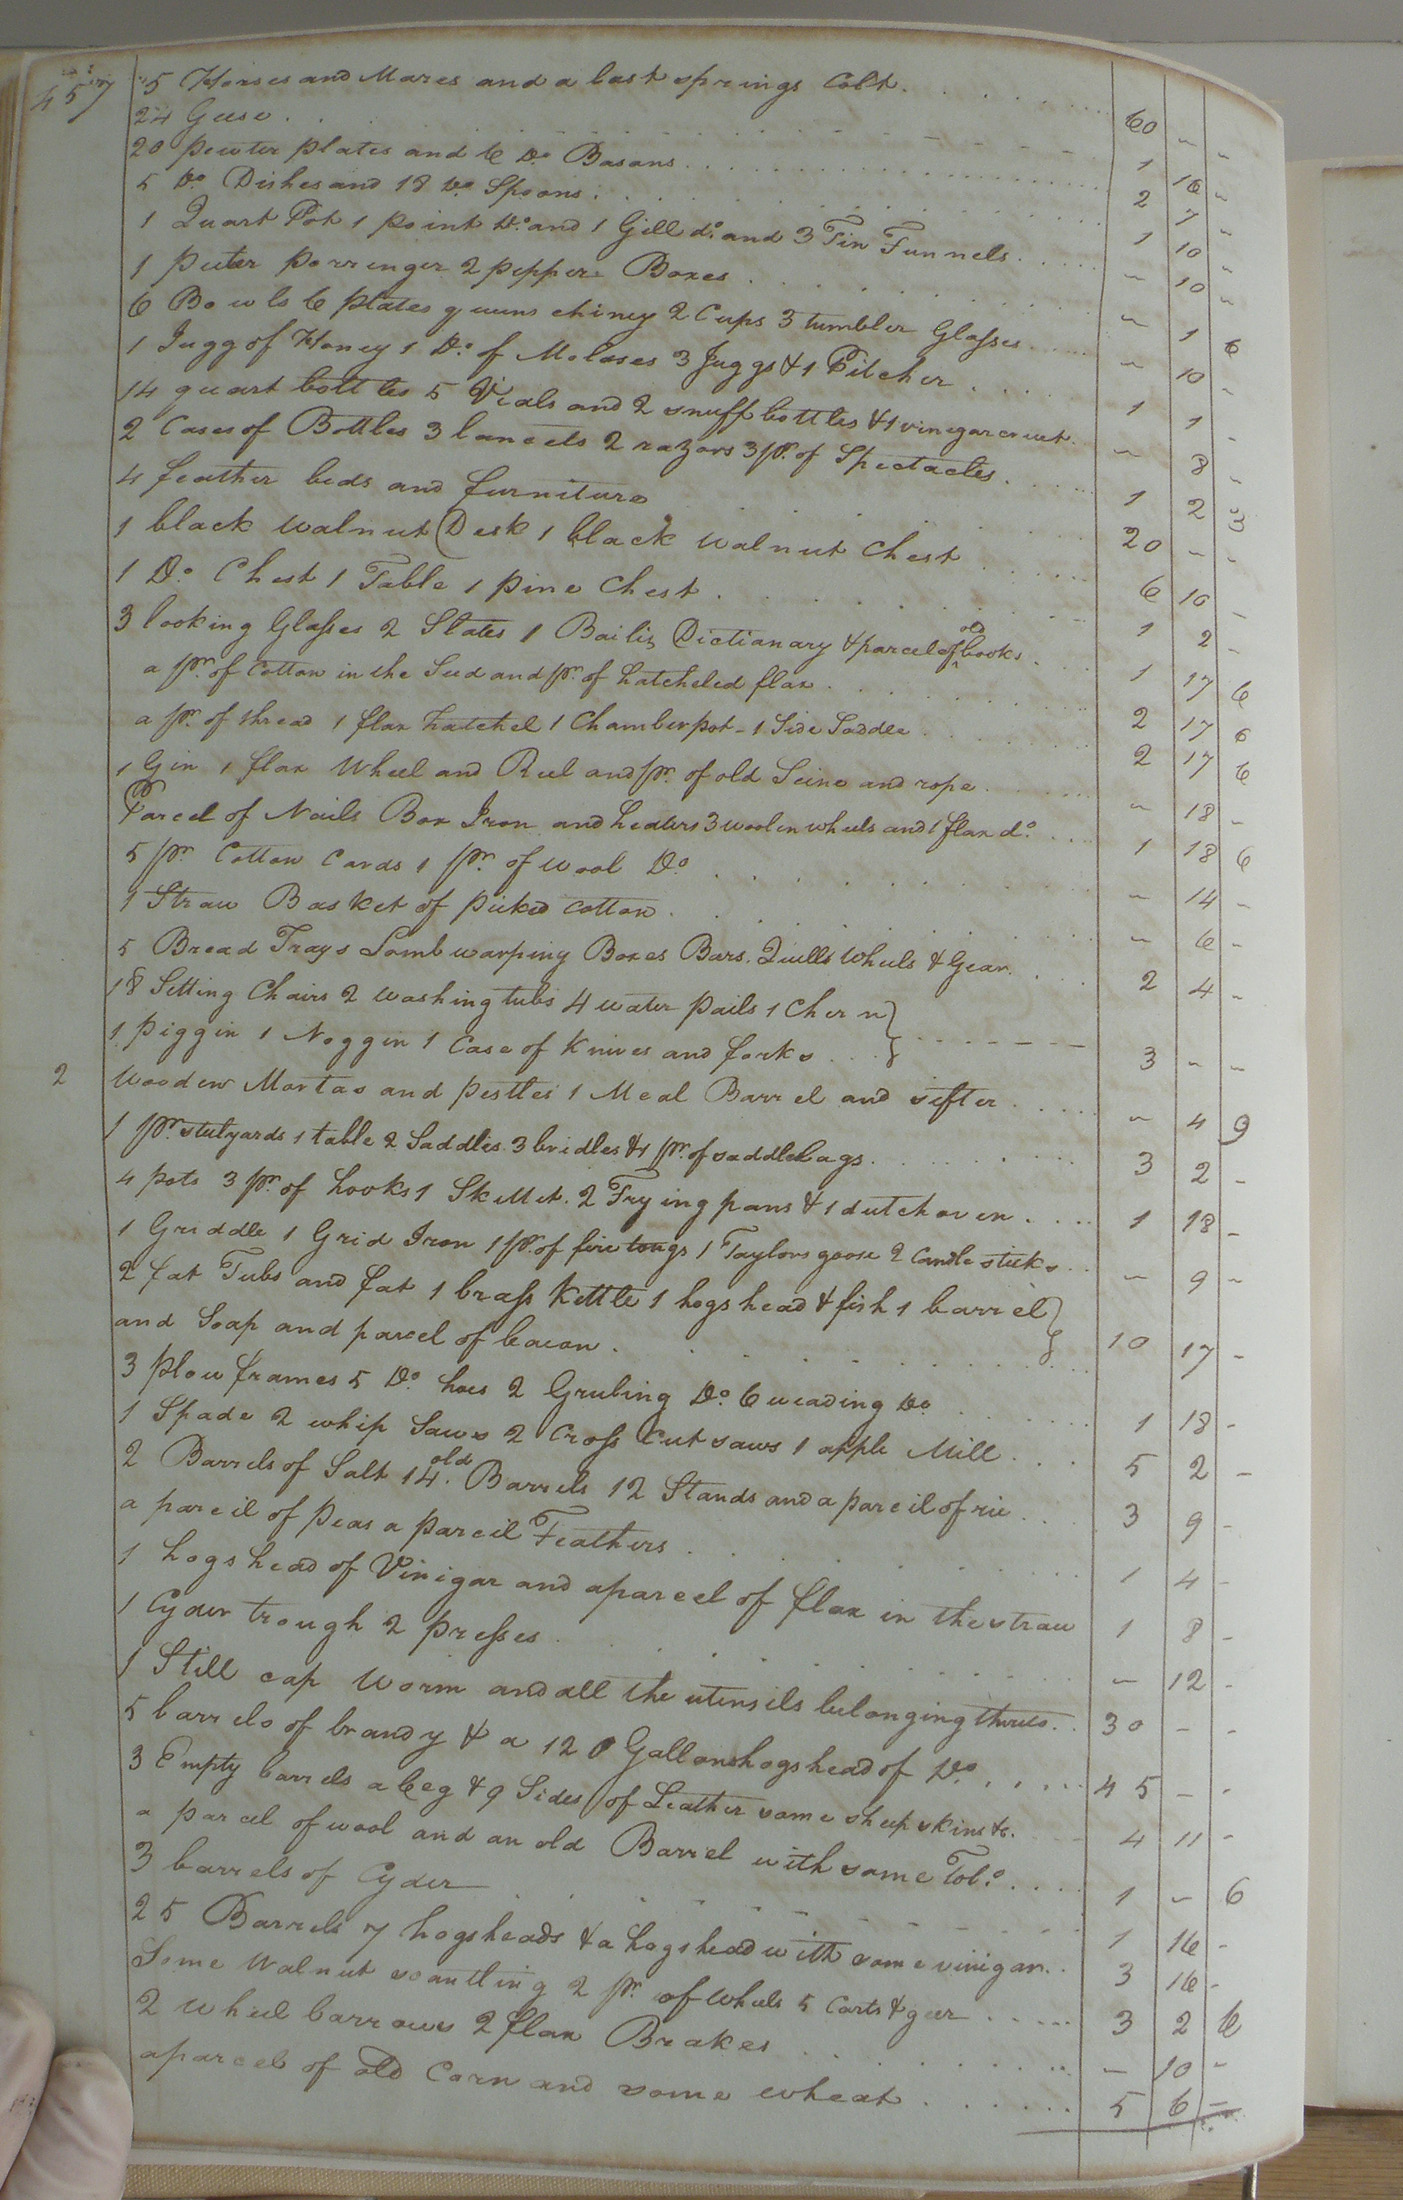 457
5 Horses and Mares and a last springs Colt . . . 60 – –
24 Geese . . . 1 16 –
20 pewter plates and 6 Do Basons . . . 2 7 –
5 Do Dishes and 18 Do Spoons . . . 1 10 –
1 Quart Pot 1 point Do and 1 Gill do and 3 Tin Funnels . . . – 10 –
1 puter porringer 2 pepper Boxes . . . – 1 6
6 Bowls 6 plates queens chiney 2 Cups 3 tumbler Glasses . . . – 10 –
1 Jugg of Honey 1 Do of Molases 3 Juggs & 1 Pitcher . . . 1 1 –
14 quart bottles 5 Vials and 2 snuff bottles & 1 vinegar cruet . – 8 –
2 Cases of Bottles 3 lancets 2 razors 3 pr. of Spectacles . . . 1 2 3
4 feather beds and furniture . . . 20 – –
1 black walnut Desk 1 black walnut Chest . . . 6 10 –
1 Do Chest 1 Table 1 pine Chest . . . 1 2 –
3 looking Glasses 2 Slates 1 Bailis Dictianary & parcel of old books . . . 1 17 6
a pr. of Cotton in the Seed and pr. of hatcheled flax . . . 2 17 6
a pr. of thread 1 flax hatchel 1 Chamber pot - 1 Side Saddle . . . 2 17 6
1 Gin 1 flax Wheel and Reel and pr. of old Seine and rope . . . – 18 –
Parcel of Nails Box Iron and heaters 3 woolen wheels and 1 flax do . . . 1 18 6
5 pr Cotton Cards 1 pr. of wool Do . . . – 14 –
1 Straw Basket of picked cotton . . . – 6 –
5 Bread Trays Loomb warping Boxes Bars. Quills wheels & Gear . . . 2 4 –
18 Setting Chairs 2 washing tubs 4 water pails 1 Chern }
1 piggin 1 Noggin 1 Case of Knives and forks . . . } 3 – –
2 Wooden Mortas and pestles 1 Meal Barrel and sifter . . . – 4 9
1 pr. stulyards 1 table 2 Saddles 3 bridles & 1 pr. of saddlebags . . . 3 2 –
4 pots 3 pr. of hooks 1 Skillet. 2 Frying pans & 1 dutch oven . . . 1 18 –
1 Griddle 1 Grid Iron 1 pr. of fire tongs 1 Taylors goose 2 Candle sticks . . . – 9 –
2 fat Tubs and fat 1 brass Kettle 1 hogshead & fish 1 barrel }
and Soap and parcel of bacon . . . } 10 17 –
3 plow frames 5 Do hoes 2 Grubing Do 6 weading Do . . . 1 18 –
1 Spade 2 whip Saws 2 Cross Cut saws 1 apple Mill . . . 5 2 –
2 Barrels of Salt 14 old Barrels 12 Stands and a parcil of rie . . . 3 9 –
a parcil of peas a parcil Feathers . . . 1 4 –
1 hogshead of Vinigar and a parcel of flax in the straw 1 8 –
1 Cyder trough 2 presses . . . – 12 –
1 Still cap worm and all the utensils belonging thereto . . 30 – –
5 barrels of brandy & a 120 Gallons hogshead of Do . . . 45 – –
3 Empty barrels a keg & 9 Sides of Leather some sheep skins &c. 4 11 –
a parcel of wool and an old Barrel with some Tob.o . . . 1 – 6
3 barrels of Cyder . . . 1 16 –
25 Barrels 7 hogsheads & a hogshead with some vinigar . . 3 16 –
Some Walnut scantling 2 pr. of wheels 5 Carts & geer . . . 3 2 6
2 wheel barrows 2 flax Brakes . . . – 10 –
a parcel of old Corn and some wheat . . . 5 6 –